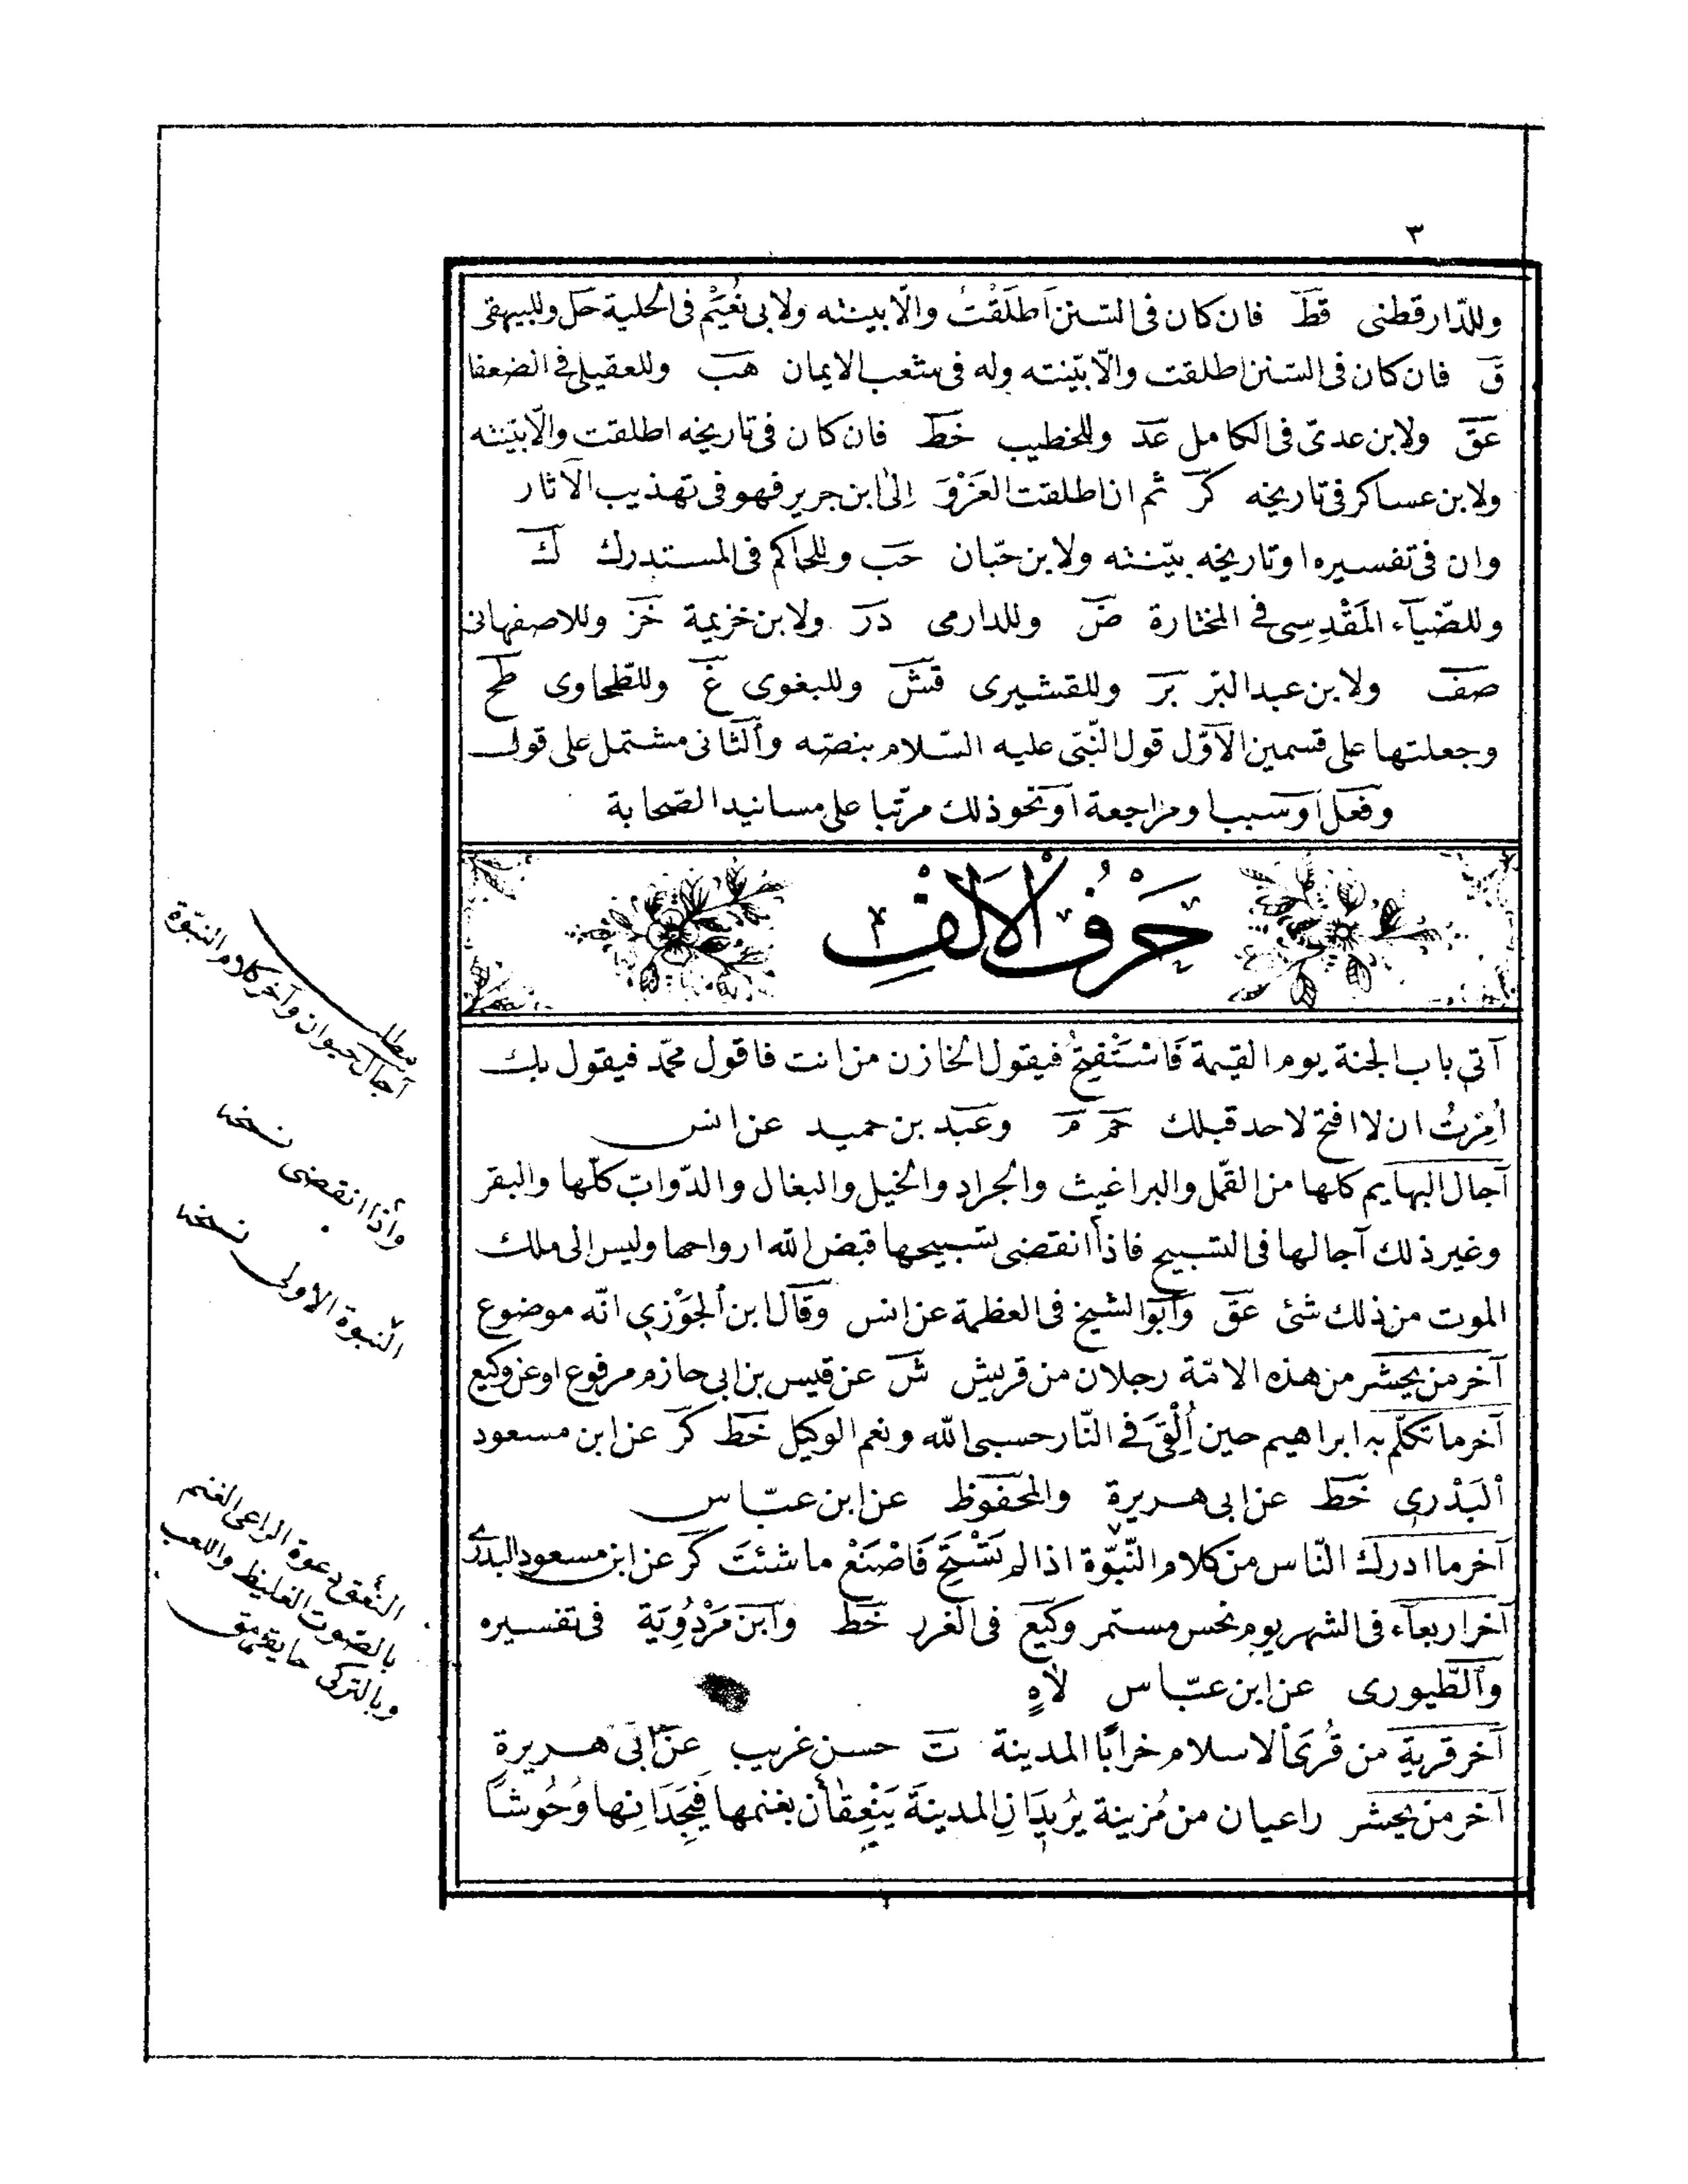 ٣
وللدّارقطنى قط فان كان فى السّنن اَطلَقْتُ والّا بينته ولابى نُعَيْم فى الحلية حل وللبيهقى
ق فان كان فى السّنن اطلقت والّا بيّنته وله فى شعب الايمان هب وللعقيلى فى الضعفا
عق ولابن عدىّ فى الكامل عد وللخطيب خط فان كان فى تاريخه اطلقت والّا بيّنته
ولابن عساكر فى تاريخه كر ثم ان اطلقت العَزْوَ اِلىٰ ابن جرير فهو فى تهذيب الآثار
وان فى تفسيره او تاريخه بيّنته ولابن حبّان حب وللحاكم فى المستدرك ك
وللضّيآء المَقْدِسِى فى المختارة ض وللدارمى در ولابن خزيمة خز وللاصفهانى
صف ولابن عبد البرّ بر وللقشيرى قش وللبغوى غ وللطّحاوى طح
وجعلتها على قسمين الاوّل قول النّبّى عليه السّلام بنصّه والثانى مشتمل على قول
وفعل او سبب او مراجعة او نحو ذلك مرتّبا على مسانيد الصّحابة
حَرْفُ الْاَلِفْ
آتى باب الجنة يوم القيمة فَاسْتَفْتِحُ فيقول الخازن من انت فاقول محمّد فيقول بك
اُمِرْتُ ان لا افتح لاحد قبلك حم م وعبد بن حميد عن انس
آجال البهايم كلها من القمّل والبراغيث والجراد والخيل والبغال والدّوابّ كلّها والبقر
وغير ذلك آجالها فى التسبيح فاذا انقضى تسبيحها قبض الله ارواحها وليس الى ملك
الموت من ذلك شئ عق وابو الشيخ فى العظمة عن انس وقال ابن الجَوْزِى انّه موضوع
آخر من يحشر من هذه الامّة رجلان من قريش ش عن قيس بن ابى حازم مرفوع او عن وكيع
آخر ما تكلّم به ابراهيم حين اُلْقِىَ فى النّار حسبى الله ونعم الوكيل خط كر عن ابن مسعود
اْلبَدْرِى خط عن ابى هريرة والمحفوظ عن ابن عبّاس
آخر ما ادرك النّاس من كلام النّبوّة اذا لم تَسْتَحِ فَاصْنَعْ ما شئتَ كر عن ابن مسعود البدرى
آخر اربعآء فى الشهر يوم نحس مستمر وكيع فى الغرر خط وابن مَرْدُوِيَة فى تفسيره
والطّيورى عن ابن عبّاس لاهٍ
آخر قرية من قُرىَ الاسلام خرابًا المدينة ت حسن غريب عن ابى هريرة
آخر من يحشر راعيان من مُزينة يُرِيدَانِ المدينَةَ يَنْعِقانِ بغنمها فَيَجِدَانِها وُحُوشًا
مطلب
آجال حيوان وآخر كلام النبّوة
واذا انقضى نسخه
النّبوة الاولى نسخه
النّعق دعوة الراعى الغنم
بالصّوت الغليظ واللعب
وبالتركى حايقرمق